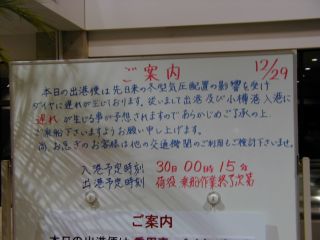 ご案内 12/29
本日の出港便は先日来の冬型気圧配置の影響を受け
ダイヤに遅れが生じております。従いまして出港及び小樽港入港に
遅れが生じる事が予想されますであらかじめご了承の上
ご乗船下さいますようお願い申し上げます。
尚、お急ぎのお客様は他の交通機関のご利用もご検討下さいませ。
入港予定時刻 30日00時15分
出港予定時刻 荷役・乗船作業終了次第
ご案内